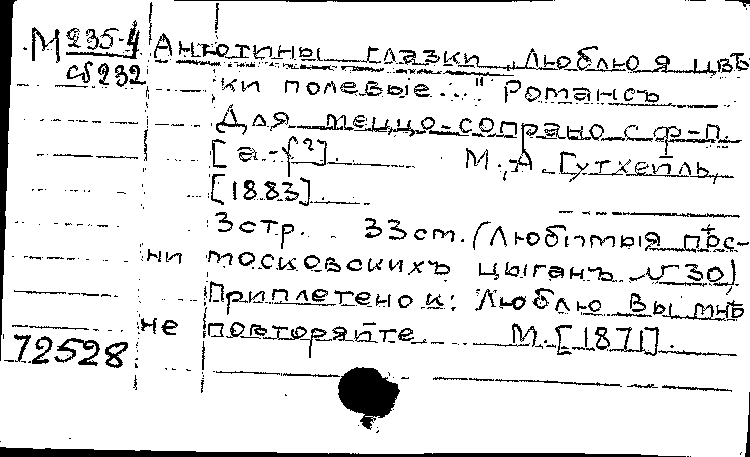 М 235-4 Антотины глазки „Люблю я цвѣ
сб 232 ки полевые..." Романсъ
Для меццо-сопрано с ф-п.
[а-f²]. М., А. Гутхейль,
[1883].
3стр. 33см. (Любимыя пѣс-
ни московскихъ цыганъ № 30)
Приплетено к: Люблю Вы мнѣ
не повторяйте. М. [1871].
72528